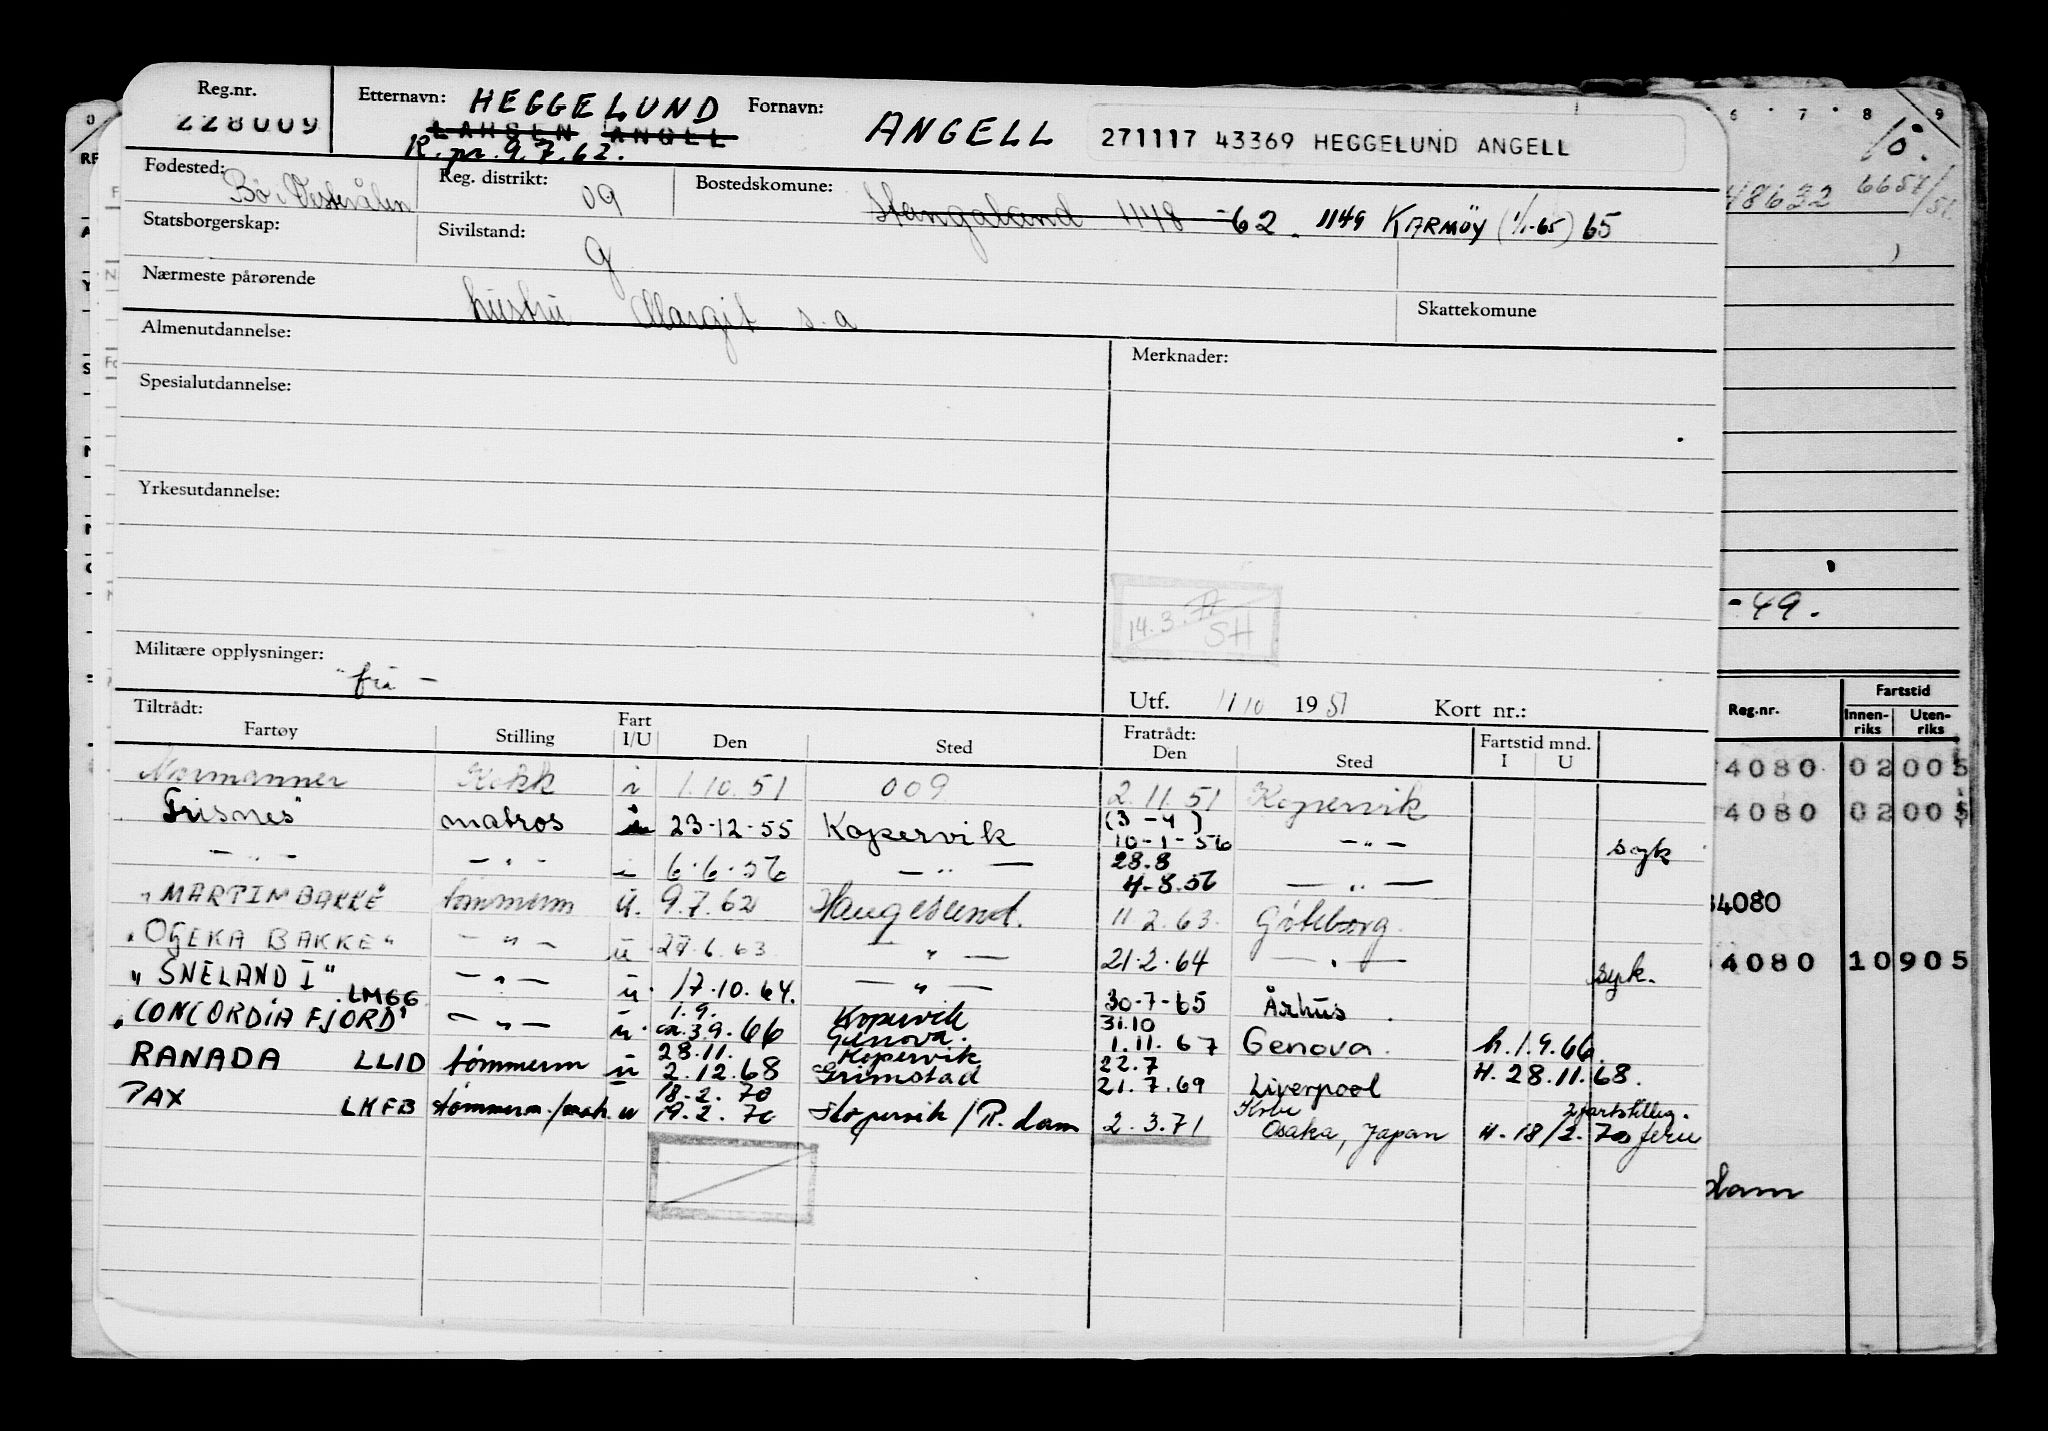 Reg.nr. Etternavn: HEGGELUND Fornavn: ANGELL 271117 43369 HEGGELUND ANGELL
228009 LARSEN ANGELL
R. pr. 9.7.62.
Fødested: Bø i Vesterålen Reg. distrikt: 09 Bostedskomune: Stangaland 1148 -62. 1149 KARMØY (1/1-65) 65
Statsborgerskap: Sivilstand: g
Nærmeste pårørende hustru Margit s.a Skattekomune
Almenutdannelse: Merknader:
Spesialutdannelse:
Yrkesutdannelse:
14.3. SH
Militære opplysninger: fri -
Utf. 1/10 1951 Kort nr.:
Tiltrådt: Fartøy Stilling Fart I/U Den Sted Fratrådt: Den Sted Fartstid mnd. I U
Normanner Kokk i 1.10.51 009 2.11.51 Kopervik
Frisnes" matros i 23-12-55 Kopervik (3-4) 10-1-56 -"- syk
-"- -"- i 6.6.56 -"- 28.8 4-8.56 -"-
"MARTIN BAKKE" tømmerm u. 9.7.62 Haugesund. 11 2.63. Gøteborg.
"OGEKA BAKKE" -"- u 6.63 -"- 21.2.64 -"- syk.
"SNELAND I" -"- u. 17.10.64. -"- 30-7-65 Århus.
"CONCORDIA FJORD" LMGG -"- u. 1.9. ca. 3.9.66 Kopervik Genova. 31.10 1.11.67 Genova. h.1.9.66.
RANADA LLID tømmerm u 28.11. 2.12.68 Kopervik Grimstad 22.7 21.7.69 Liverpool H. 28.11.68.
PAX LKFB tømmerm./mat. u 18.2.70 19.2.70 Kopervik / R.dam 2.3.71 Kobe Osaka, Japan H. 18/2.70 ferie
6 7 8 9
10.
48632 6657/51
-49.
Reg.nr. Fartstid
Innen-riks Uten-riks
4080 02 005
4080 02 005
4080
4080 10905
dam